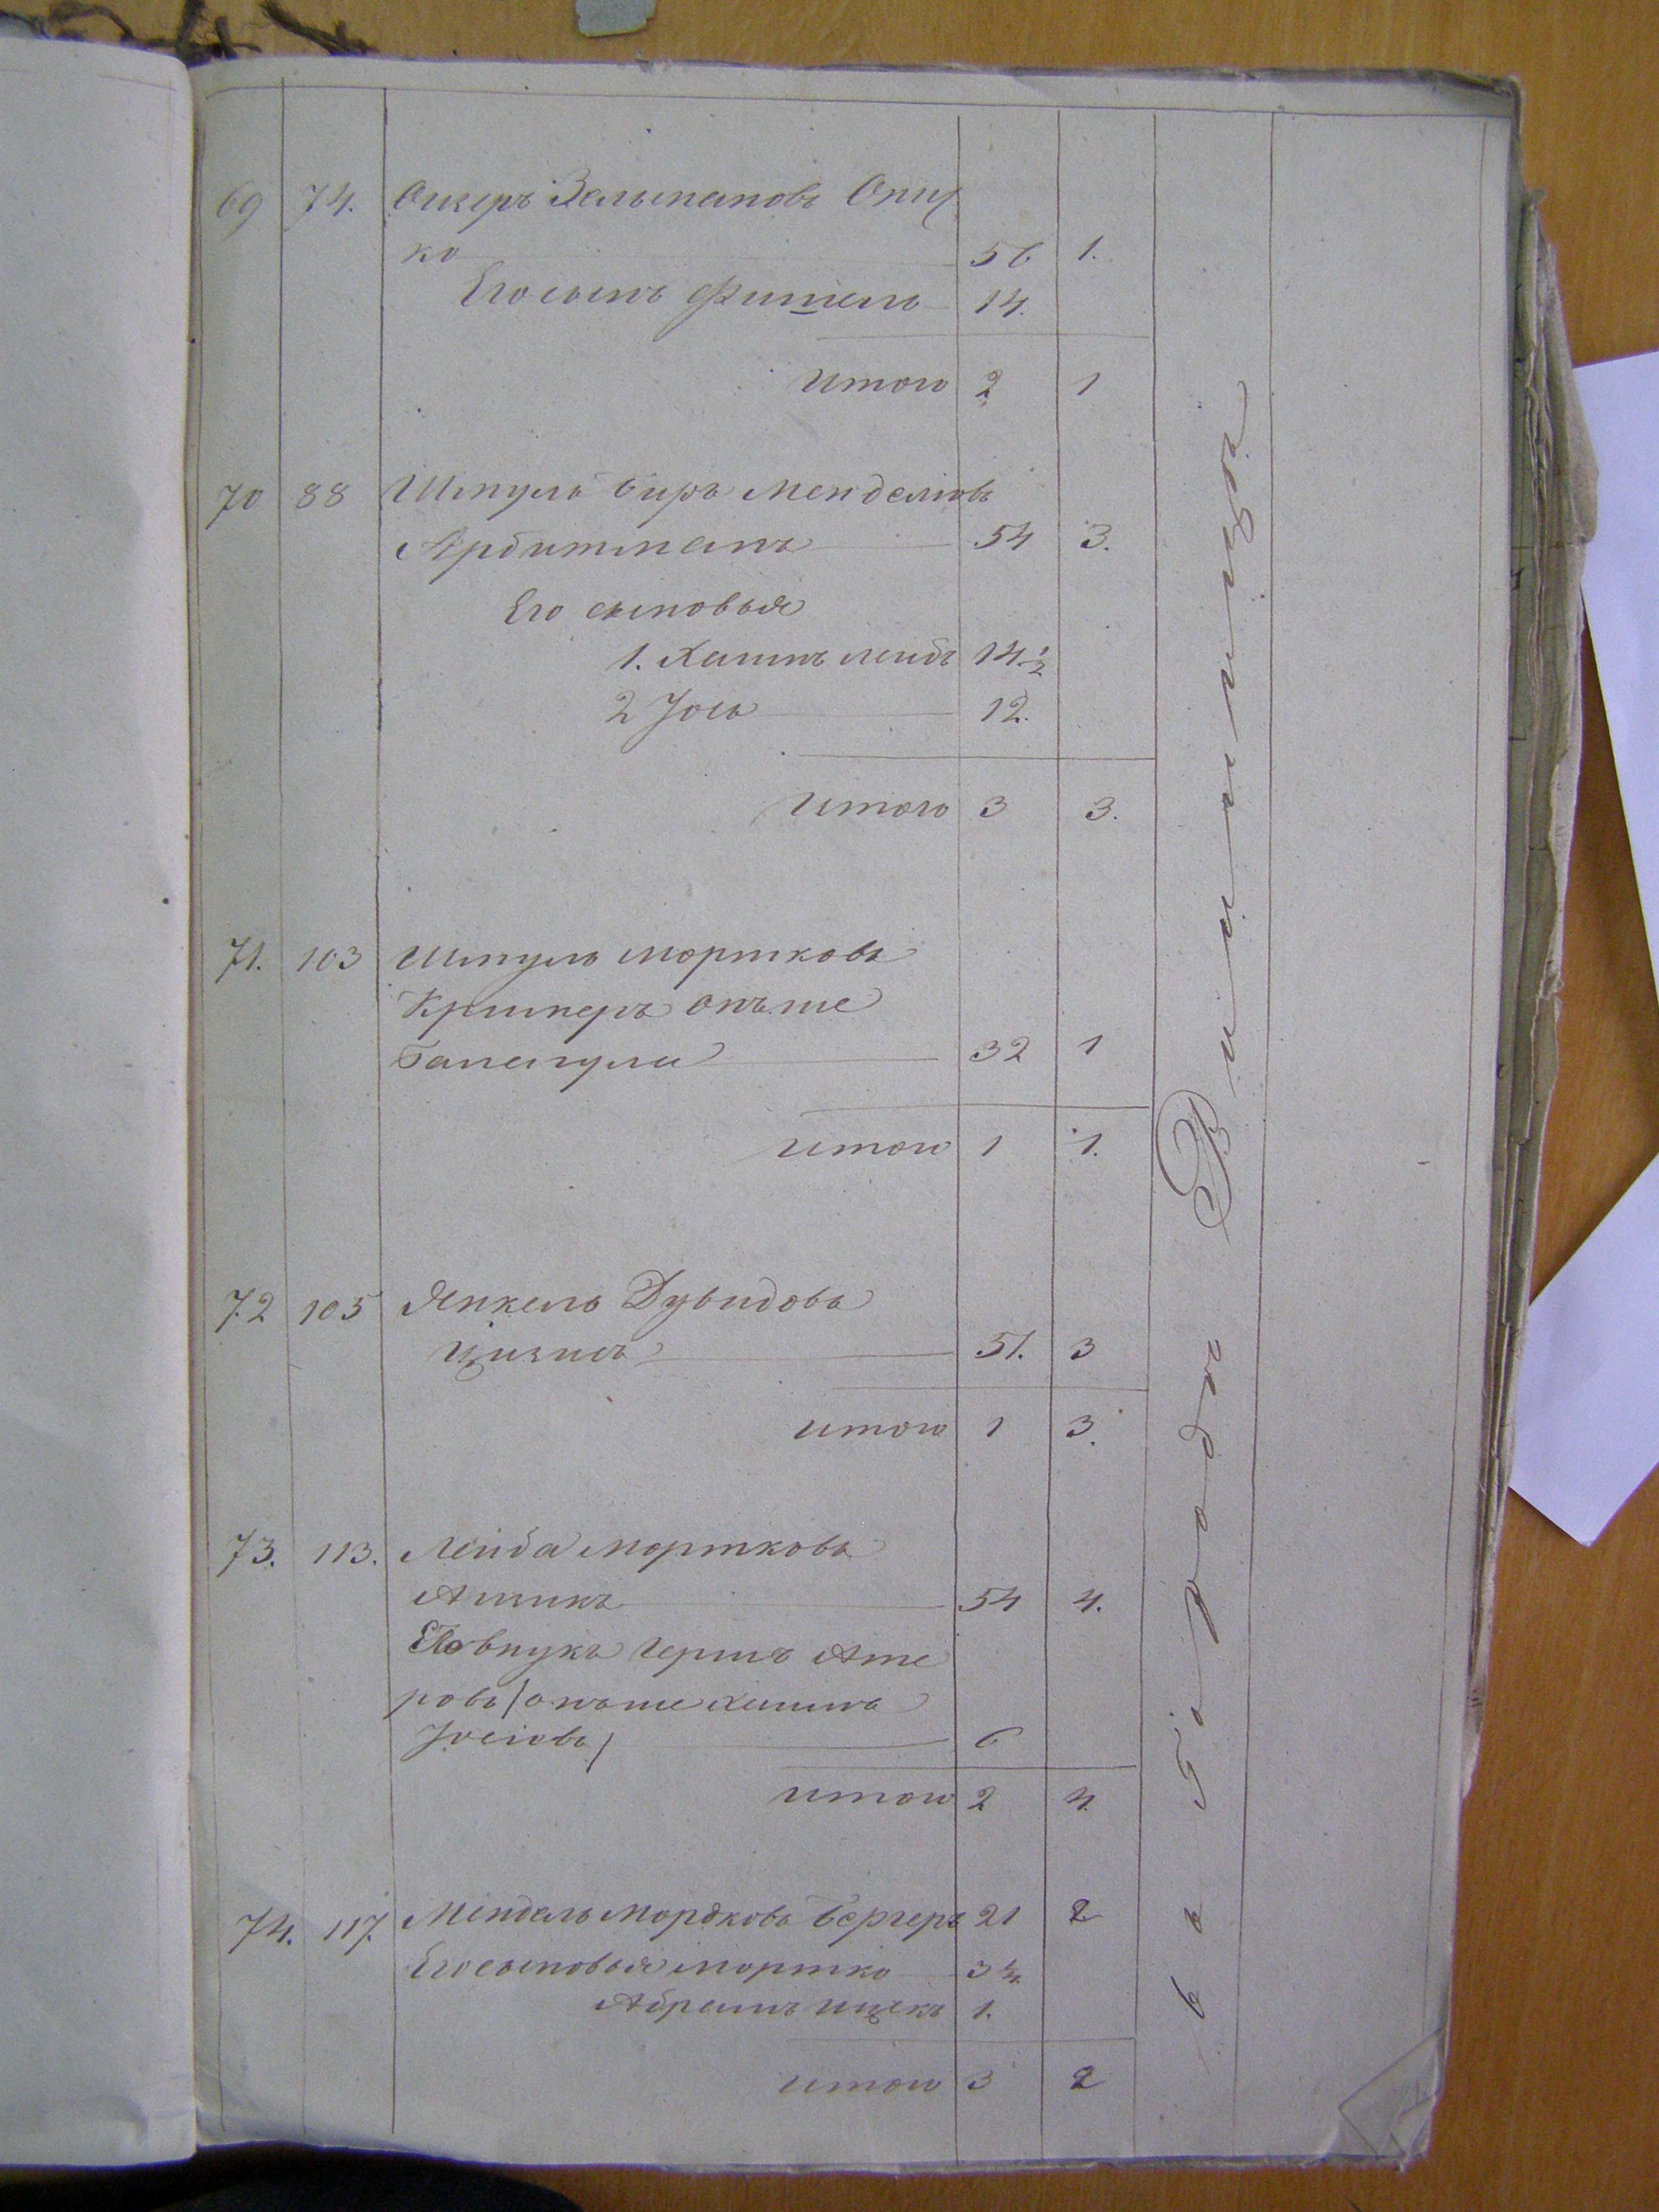 69 74. Ошеръ Зельмановъ Опиц
ко 56 1.
Его сынъ Фишель 14.
Итого 2 1
70 88 Шмуль Биръ Менделювъ
Арбитманъ 54 3.
Его сыновья
1. Хаимъ лейбъ 14 1/2
2 Іось 12.
Итого 3 3.
71. 103 Шмуль Мортковъ
онъ же
32 1
Итого 1 1.
72 105 Янкель Дувидовъ
51. 3
Итого 1 3.
73. 113. Лейба Мортковъ
54 4.
Его внукъ Гершъ
ровъ /онъ же Хаимъ
Іосіовъ/ 6
Итого 2 4.
74. 117. Мендель Мордковъ Бергеръ 21 2
Его сыновья Мортко 3
Абрамъ Ицекъ 1.
Итого 3 2
въ городѣ Винницѣ